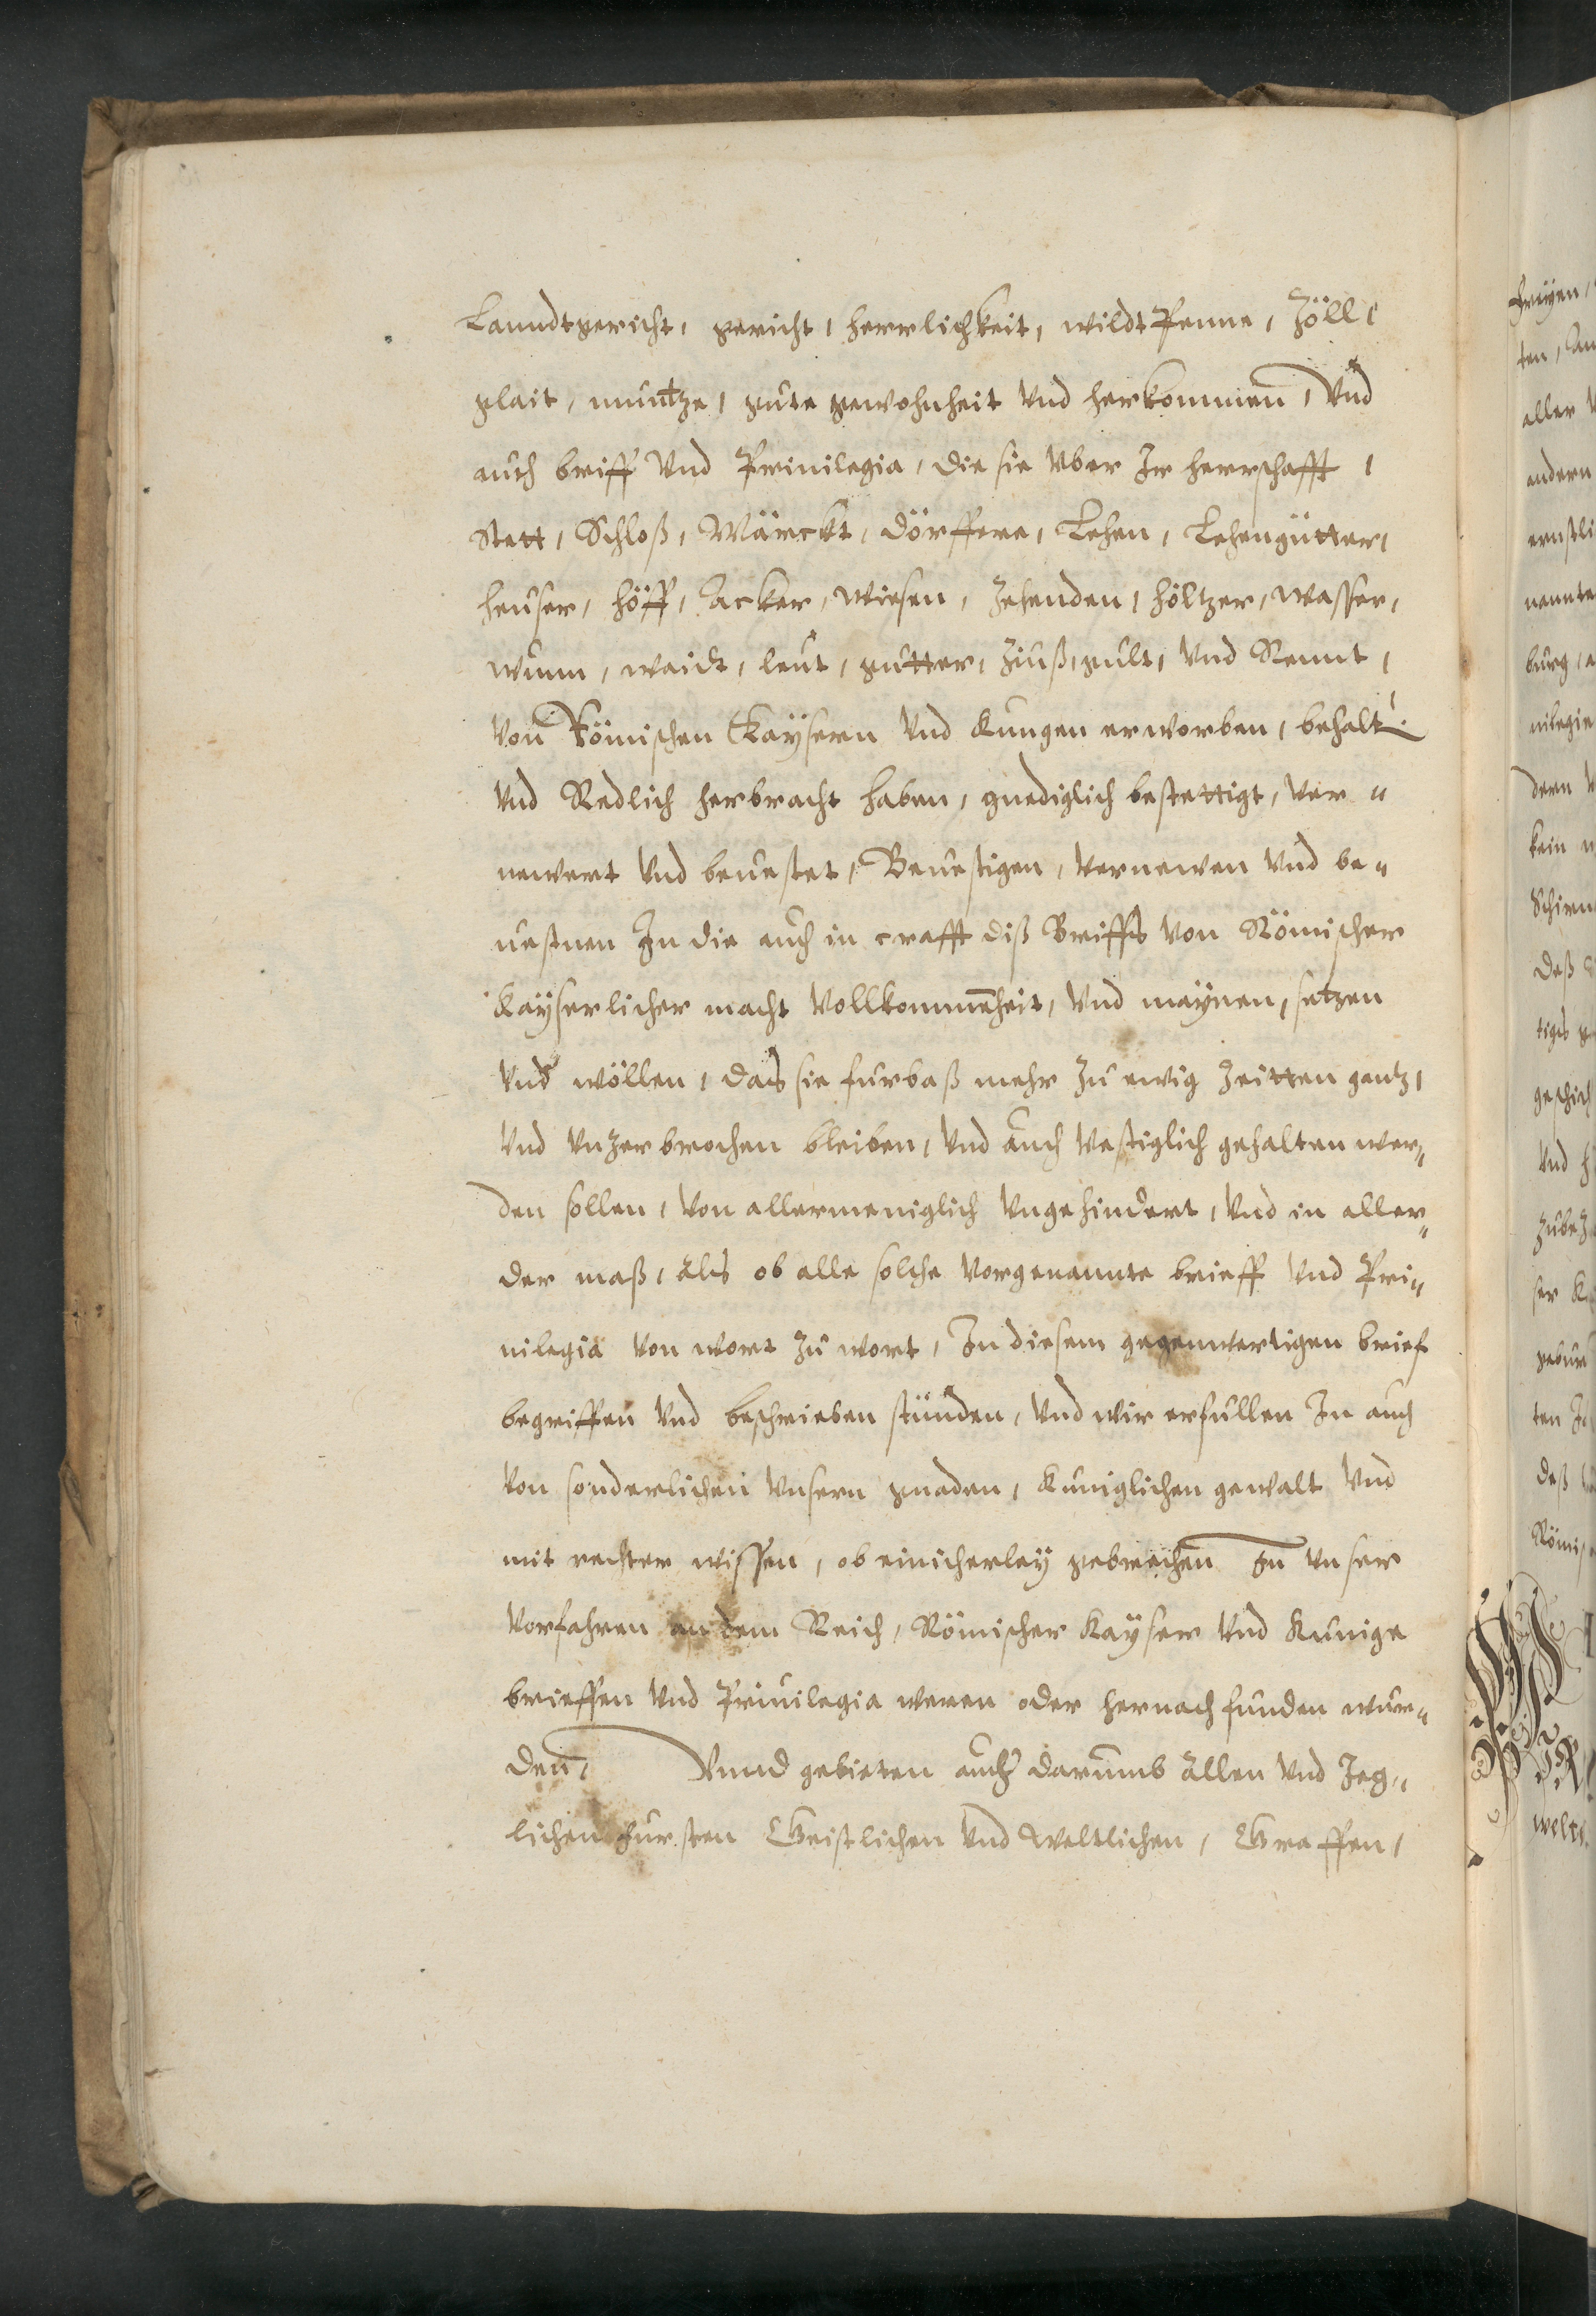 Lanndtgericht, gericht, herrlichkeit, wildtPenne, Zöll,
glait, müntze, güte gewohnheit Vnd herkommen, Vnd
auch briff Vnd Priuilegia, die sie Vber Ir herrschafft,
Stett, Schloß, Märckt, Dörffere, Lehen, Lehengütter,
heuser, höff, Äcker, Wiesen, Zehenden, höltzer, wasser,
wunn, waidt, leut, gutter, Zinß, gult, Vnd Rennt,
Von Römischen Kaÿsern Vnd Kungen erworben, behalt.
Vnd Redlich herbracht haben, gnediglich bestettigt, Ver„
newert Vnd beuestet, Beuestigen, Vernewen Vnd be„
uestnen In die auch in crafft diß Briffs Von Römischer
Kaÿserlicher macht Vollkommenheit, Vnd maÿnen, setzen
Vnd wöllen, das sie furbaß mehr Zu ewig Zeitten gantz,
Vnd Vnzerbrochen bleiben, Vnd auch Vestiglich gehalten wer„
den sollen, Von allermeniglich Vngehindert, Vnd in aller„
der maß, als ob alle solche Vorgenannte brieff Vnd Pri„
uilegia Von wort Zu wort, In diesem gegenwertigen brief
begriffen Vnd beschrieben stünden, Vnd wir erfullen In auch
Von sonderlichen Vnsern gnaden, Kuniglichen gewalt Vnd
mit rechter wissen, ob einicherleÿ gebrechen In Vnser
Vorfahren an dem Reich, Römischer Kaÿser Vnd Kunige
brieffen Vnd Priuilegia weren oder hernach funden wur„
den, Vnnd gebieten auch darumb allen Vnd Jeg„
lichen Fursten Geistlichen Vnd Weltlichen, Graffen,